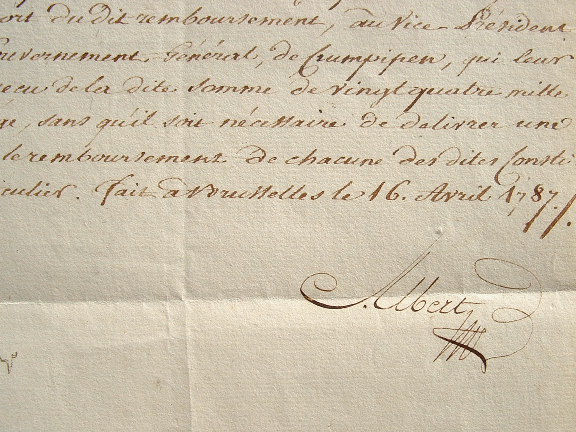 ort du dit remboursement, au Vice-Président
ouvernement Général, de Crumpipen, qui leur
eçu de la dite somme de vingt quatre mille
ge, sans qu'il soit nécessaire de delivrer une
le remboursement de chacune des dites Consti
iculier. Fait à Brusselles le 16. Avril 1787.
Albert